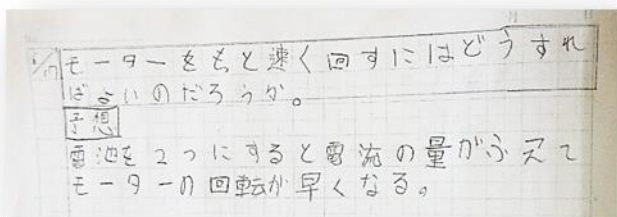 6/17 モーターをもと速く回すにはどうすれ
ばよいのだろうか。
予想
電池を2つにすると電流の量がふえて
モーターの回転が早くなる。